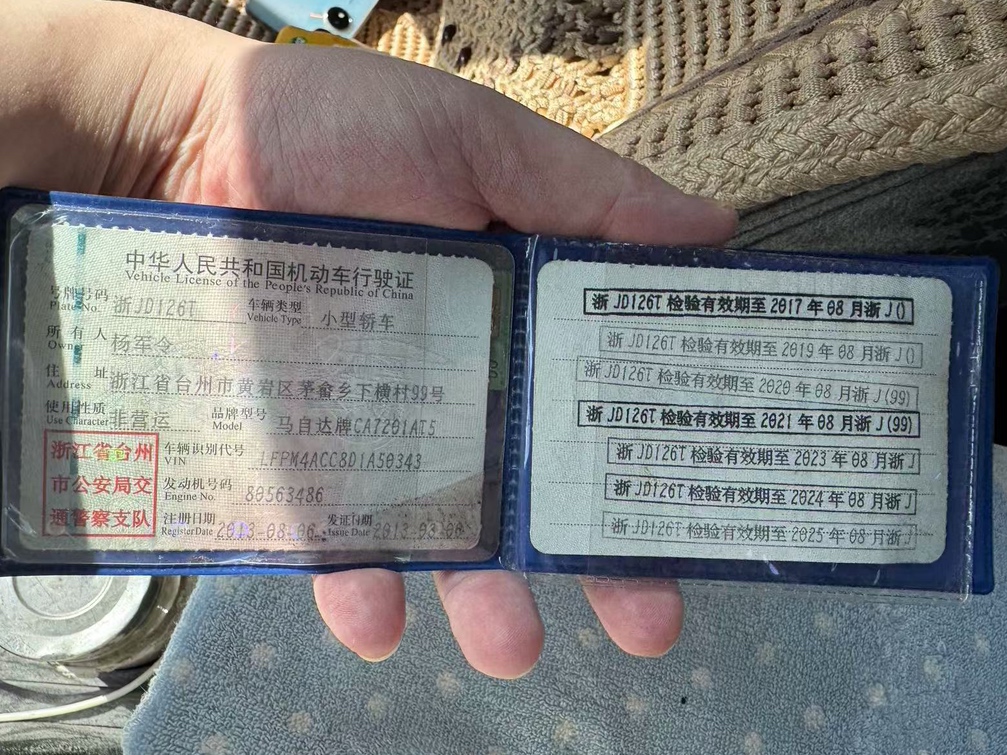 中华人民共和国机动车行驶证
Vehicle License of the People's Republic of China
号牌号码 浙JD126T 车辆类型 小型轿车
Plate No. Vehicle Type
所有人 杨军令
Owner
住址 浙江省台州市黄岩区茅畲乡下横村99号
Address
使用性质 非营运 品牌型号 马自达牌CA7201AT5
Use Character Model
浙江省台州
市公安局交
通警察支队
车辆识别代号 LFPM4ACC8D1A50343
VIN
发动机号码 80563486
Engine No.
注册日期 2013-08-06 发证日期
Register Date Issue Date
浙JD126T 检验有效期至 2017 年 08 月浙 J()
浙JD126T 检验有效期至 2019 年 08 月浙 J()
浙JD126T 检验有效期至 2020 年 08 月浙 J(99)
浙JD126T 检验有效期至 2021 年 08 月浙 J(99)
浙JD126T 检验有效期至 2023 年 08 月浙 J
浙JD126T 检验有效期至 2024 年 08 月浙 J
浙JD126T 检验有效期至 2025 年 08 月浙 J